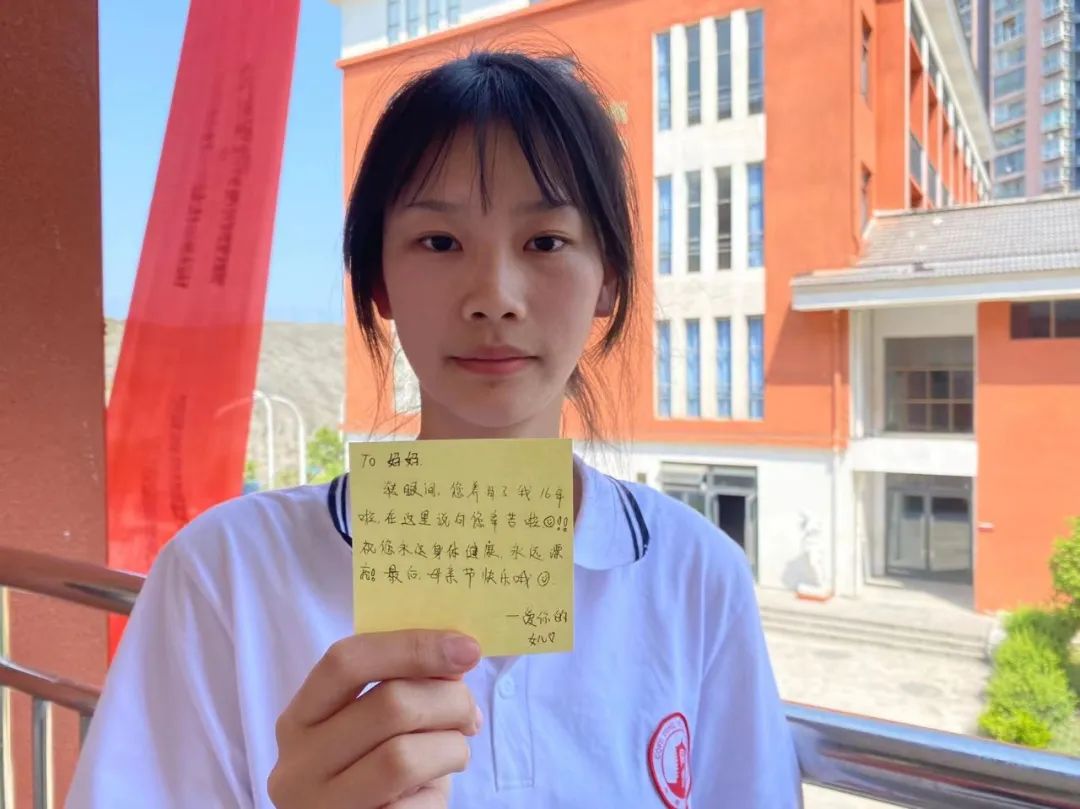 To 妈妈.
转眼间,您养育了我16年
啦,在这里说句您辛苦啦☺!!
祝您永远身体健康,永远漂
亮!最后,母亲节快乐哦☺.
—爱你的
女儿♡